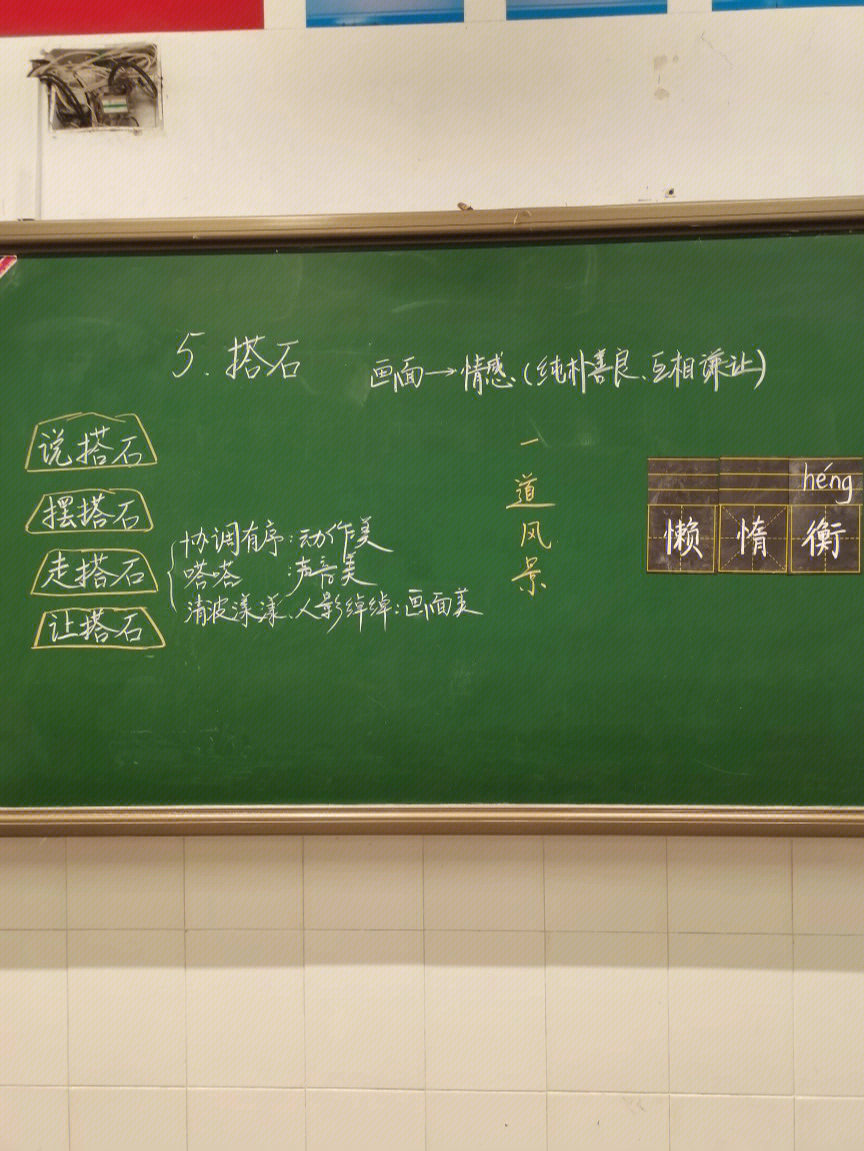 5.搭石
画面→情感(纯朴善良、互相谦让)
说搭石
摆搭石
走搭石
让搭石
协调有序:动作美
嗒嗒:声音美
清波漾漾、人影绰绰:画面美
一道风景
héng
懒惰衡